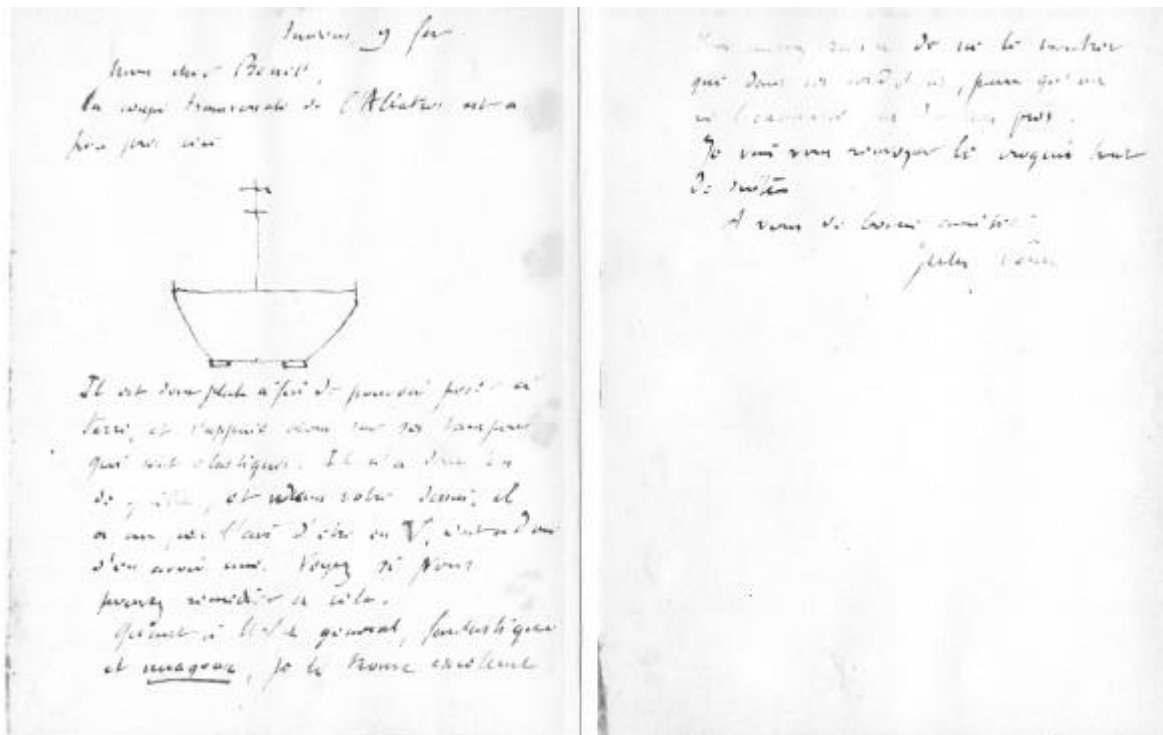 mon cher Benett,
la coupe transversale de l'Albatros est à
peu près ceci
Il est donc plat afin de pouvoir poser à
terre, et s'appuie alors sur ses tampons
qui sont élastiques. Il n'a donc
de quille, et dans votre dessin, il
a un peu l'air d'être en V, c'est-à-dire
d'en avoir une. Voyez si vous
pouvez remédier à cela.
Quant à l'effet général, fantastique
et nuageux, je le trouve excellent
raison de ne le montrer
que dans ces conditions, pour qu'on
ne près.
Je vais vous renvoyer le croquis tout
de suite
A vous de bonne amitié
Jules Verne